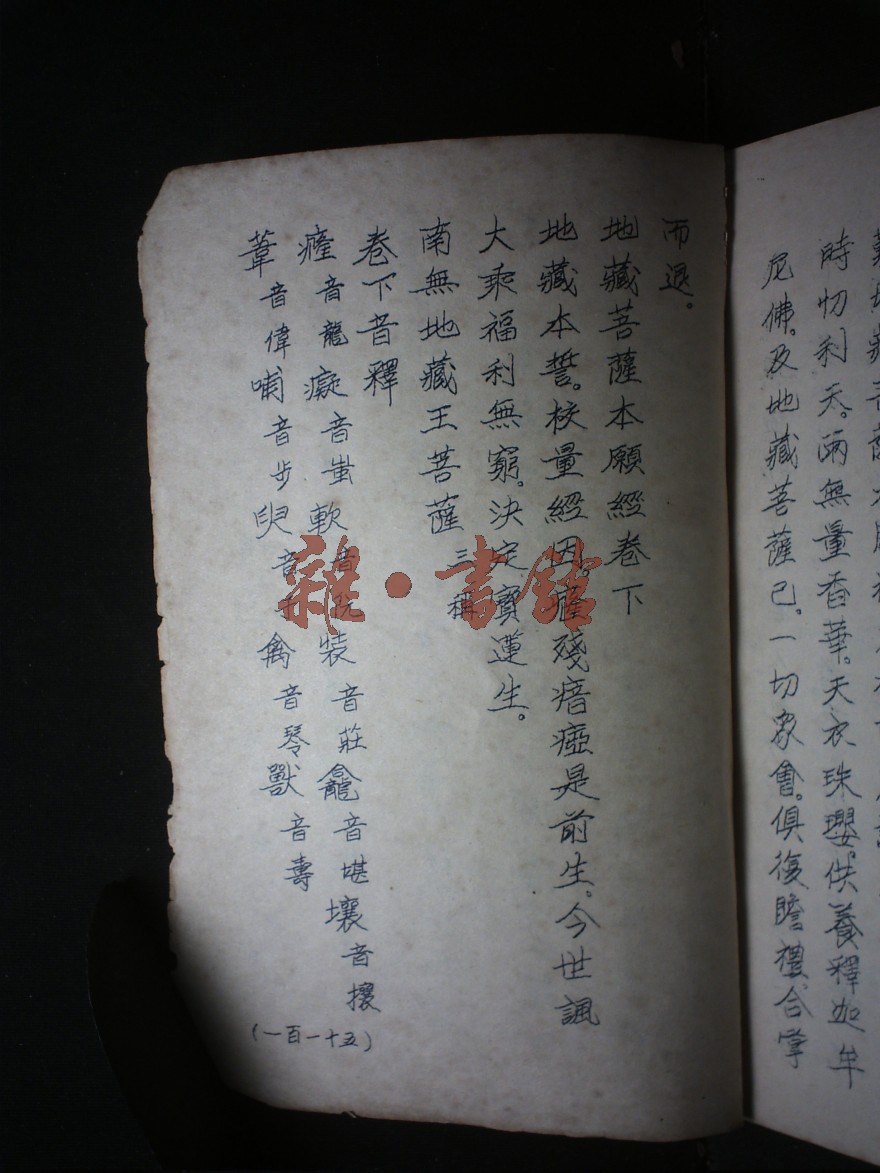 時忉利天。雨無量香華。天衣珠瓔。供養釋迦牟
尼佛。及地藏菩薩已。一切眾會。俱復瞻禮。合掌
而退。
地藏菩薩本願經卷下
地藏本誓。校量經因。癃殘瘖瘂是前生。今世諷
大乘福利無窮。決定寶蓮生。
南無地藏王菩薩 三稱
卷下音釋
癃音龍癡音蚩軟音阮裝音莊龕音堪壤音攘
葦音偉哺音步兕音 禽音琴獸音壽
(一百一十五)
雜·書館